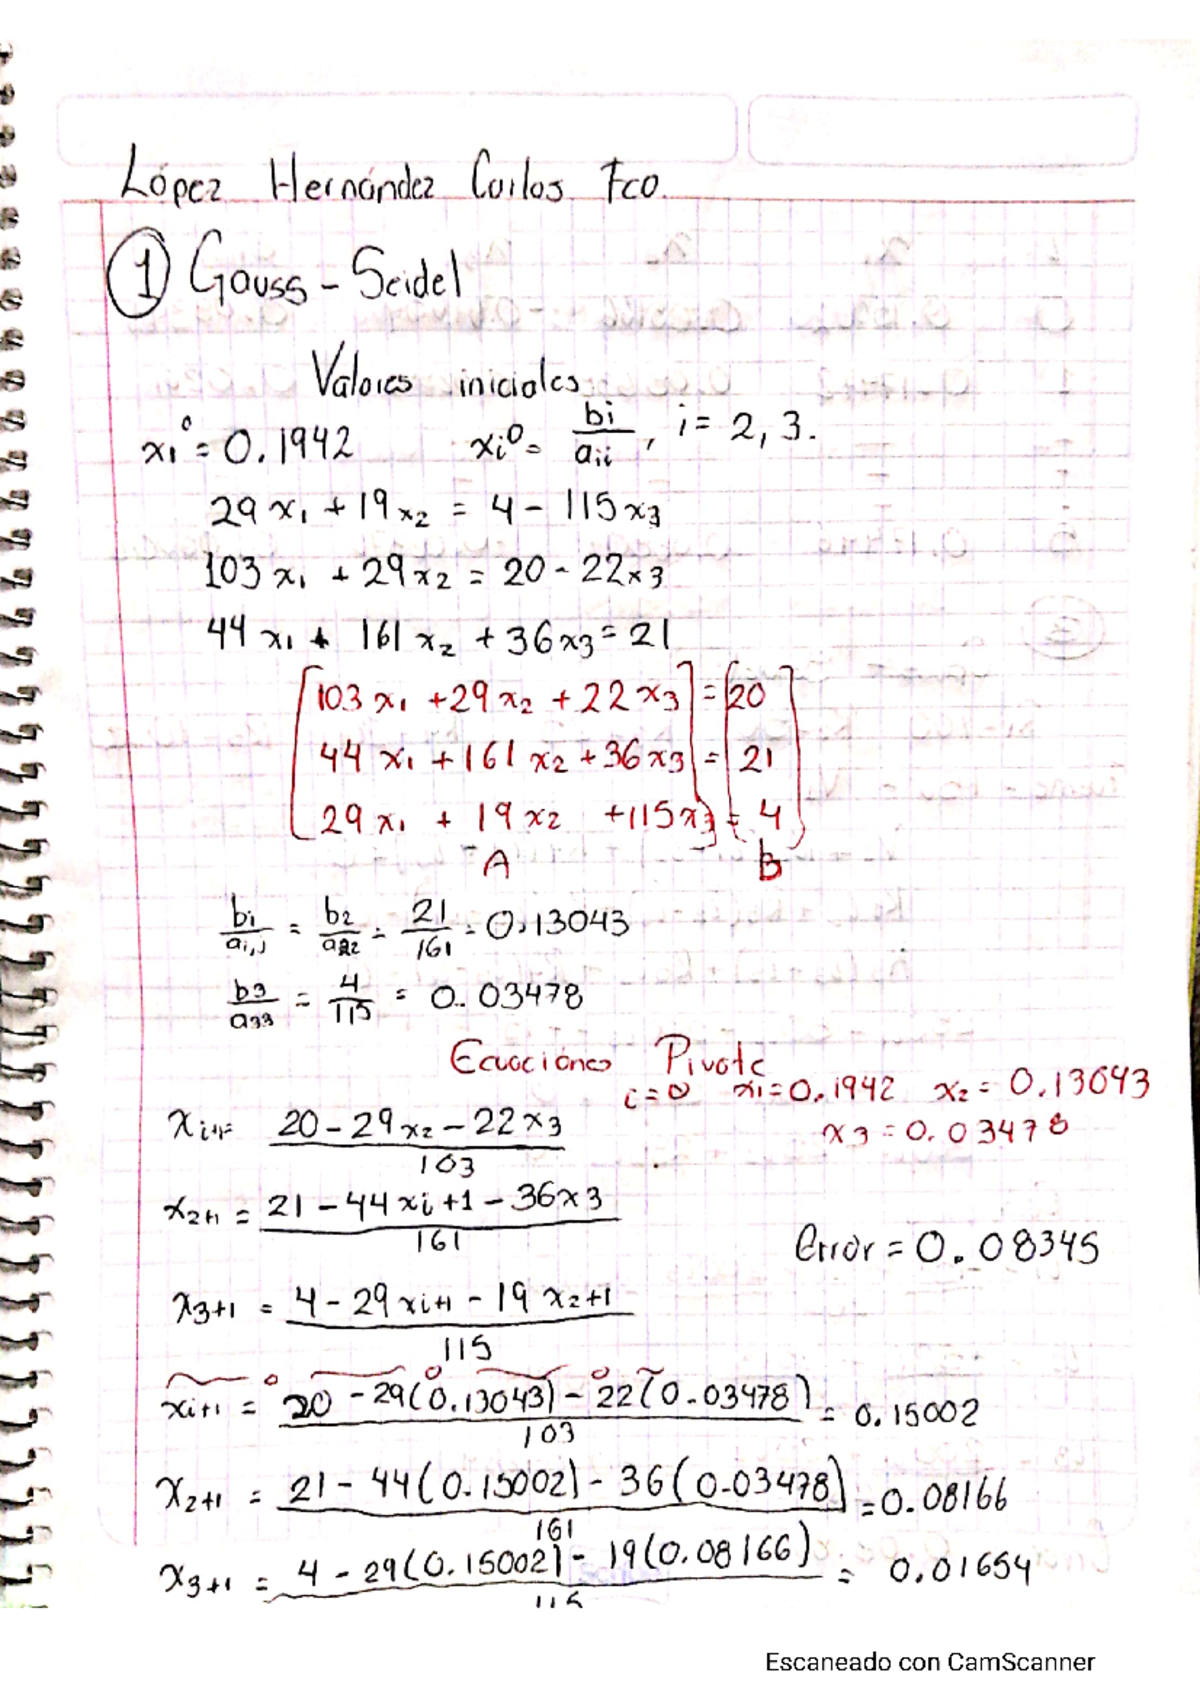 López Hernández Carlos Fco.
① Gauss-Seidel
Valores iniciales
x₁⁰ = 0.1942    xi⁰ = bi/aii, i = 2, 3.
29x₁ + 19x₂ = 4 - 115x₃
103x₁ + 29x₂ = 20 - 22x₃
44x₁ + 161x₂ + 36x₃ = 21
103x₁ + 29x₂ + 22x₃ = 20
44x₁ + 161x₂ + 36x₃ = 21
29x₁ + 19x₂ + 115x₃ = 4
A    B
bi/ai,j = b2/a22 = 21/161 = 0.13043
b3/a33 = 4/115 = 0.03478
Ecuaciones Pivote
i=0    x₁=0.1942    x₂=0.13043
x₃=0.03478
xi+1= (20 - 29x₂ - 22x₃)/103
x2+1 = (21 - 44xi+1 - 36x3)/161
Error = 0.08345
x3+1 = (4 - 29xi+1 - 19x2+1)/115
xi+1 = (20 - 29(0.13043) - 22(0.03478))/103 = 0.15002
x2+1 = (21 - 44(0.15002) - 36(0.03478))/161 = 0.08166
x3+1 = (4 - 29(0.15002) - 19(0.08166))/115 = 0.01654
Escaneado con CamScanner